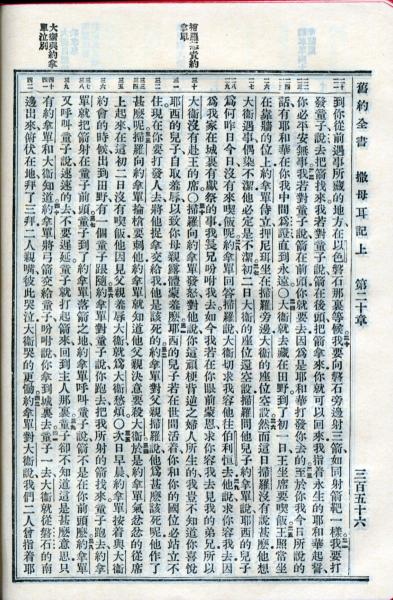 舊約全書　撒母耳記上　第二十章　三百五十六
到你從前遇事所藏的地方在以色磐石那裏等候我要向磐石旁邊射三箭如同射箭靶一樣我要打
發童子說去把箭找來我若對童子說箭在後頭把箭拿來你就可以回來我指着永生的耶和華起誓
你必平安無事我若對童子說箭在前頭你就要去因爲是耶和華打發你去的至於你我今日所說的
話有耶和華在你我中間爲證直到永遠○大衛就去藏在田野到了初一日王坐席要喫飯王照常坐
在靠牆的位上約拿單侍立押尼珥坐在掃羅旁邊大衛的座位空設然而這日掃羅沒有說甚麼他想
大衛遇事偶染不潔他必定是不潔初二日大衛的座位還空設掃羅問他兒子約拿單說耶西的兒子
爲何昨日今日沒有來喫飯呢約拿單回答掃羅說大衛切求我容他往伯利恒去他說求你容我去因
爲我家在城裏有獻祭的事我長兄吩咐我去如今我若在你眼前蒙恩求你容我去見我的弟兄所以
大衛沒有赴王的席○掃羅向約拿單發怒對他說你這頑梗背逆之婦人所生的我豈不知道你喜悅
耶西的兒子自取羞辱以及你母親露體蒙羞麼耶西的兒子若在世間活着你和你的國位必站立不
住現在你要打發人去將他捉拿交給我他是該死的約拿單對父親掃羅說他爲甚麼該死呢他作了
甚麼呢掃羅向約拿單掄槍要刺他約拿單就知道他父親決意要殺大衛於是約拿單氣忿忿的從席
上起來在這初二日沒有喫飯他因見父親羞辱大衛就爲大衛愁煩○次日早晨約拿單按着與大衛
約會的時候出到田野有一個童子跟隨約拿單對童子說你跑去把我所射的箭找來童子跑去約拿
單就把箭射在童子前頭童子到了約拿單落箭之地約拿單呼叫童子說箭不是在你前頭麼約拿單
又呼叫童子說速速的去不要遲延童子就拾起箭來回到主人那裏童子卻不知道這是甚麼意思只
有約拿單和大衛知道約拿單將弓箭交給童子吩咐說你拿到城裏去童子一去大衛就從磐石的南
邊出來俯伏在地拜了三拜二人親嘴彼此哭泣大衛哭的更慟約拿單對大衛說我們二人曾指着耶
掃羅怒責約
拿單
大衛與約拿
單泣別